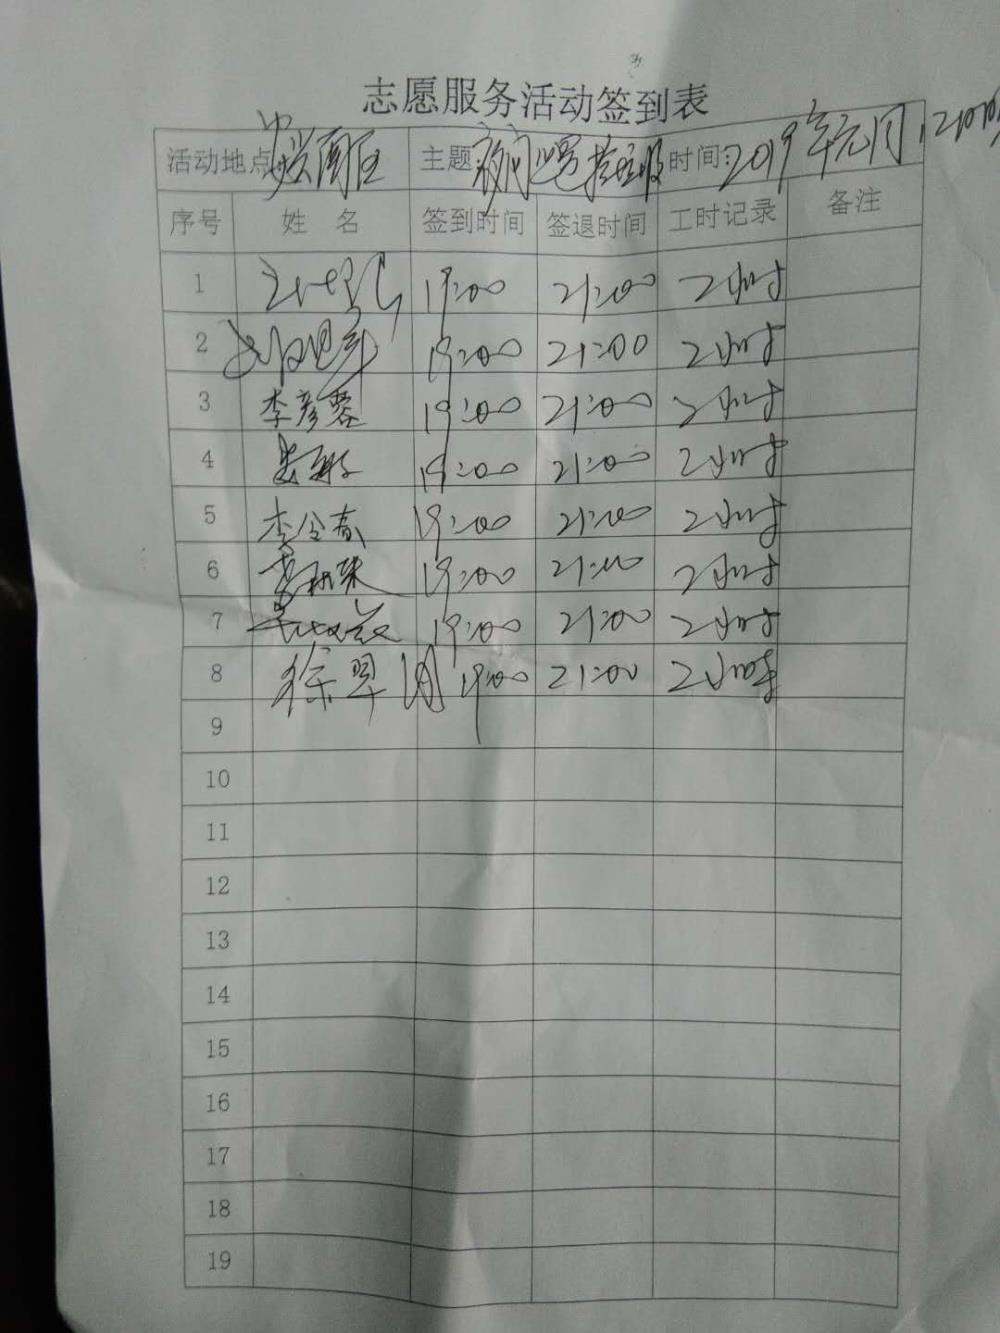 志愿服务活动签到表
活动地点 主题: 夜间 时间: 2019年元月12日晚
序号 姓 名 签到时间 签退时间 工时记录 备注
1 19:00 21:00 2小时
2 19:00 21:00 2小时
3 李彦蓉 19:00 21:00 2小时
4 19:00 21:00 2小时
5 李会春 19:00 21:00 2小时
6 19:00 21:00 2小时
7 19:00 21:00 2小时
8 徐翠 19:00 21:00 2小时
9
10
11
12
13
14
15
16
17
18
19